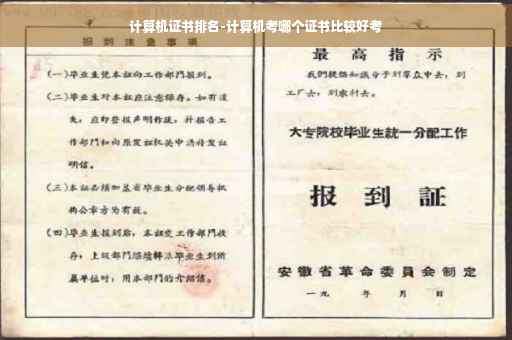 计算机证书排名-计算机考哪个证书比较好考
报到注意事项
(一)毕业生凭本证向工作部门报到。
(二)毕业生对本证应注意保存。如有遗
失,应即登报声明作废,并报告工
作部门和向原发证机关申请补发证
明信。
(三)本证必须加盖省毕业生分配领导机
构公章方为有效。
(四)毕业生报到后,本证交工作部门收
存;上级部门继续转派毕业生到所
属单位时,用本部门的介绍信。
最高指示
我们提倡知识分子到群众中去,到
工厂去,到农村去。
大专院校毕业生統一分配工作
报到証
安徽省革命委員会制定
一九 年 月 日